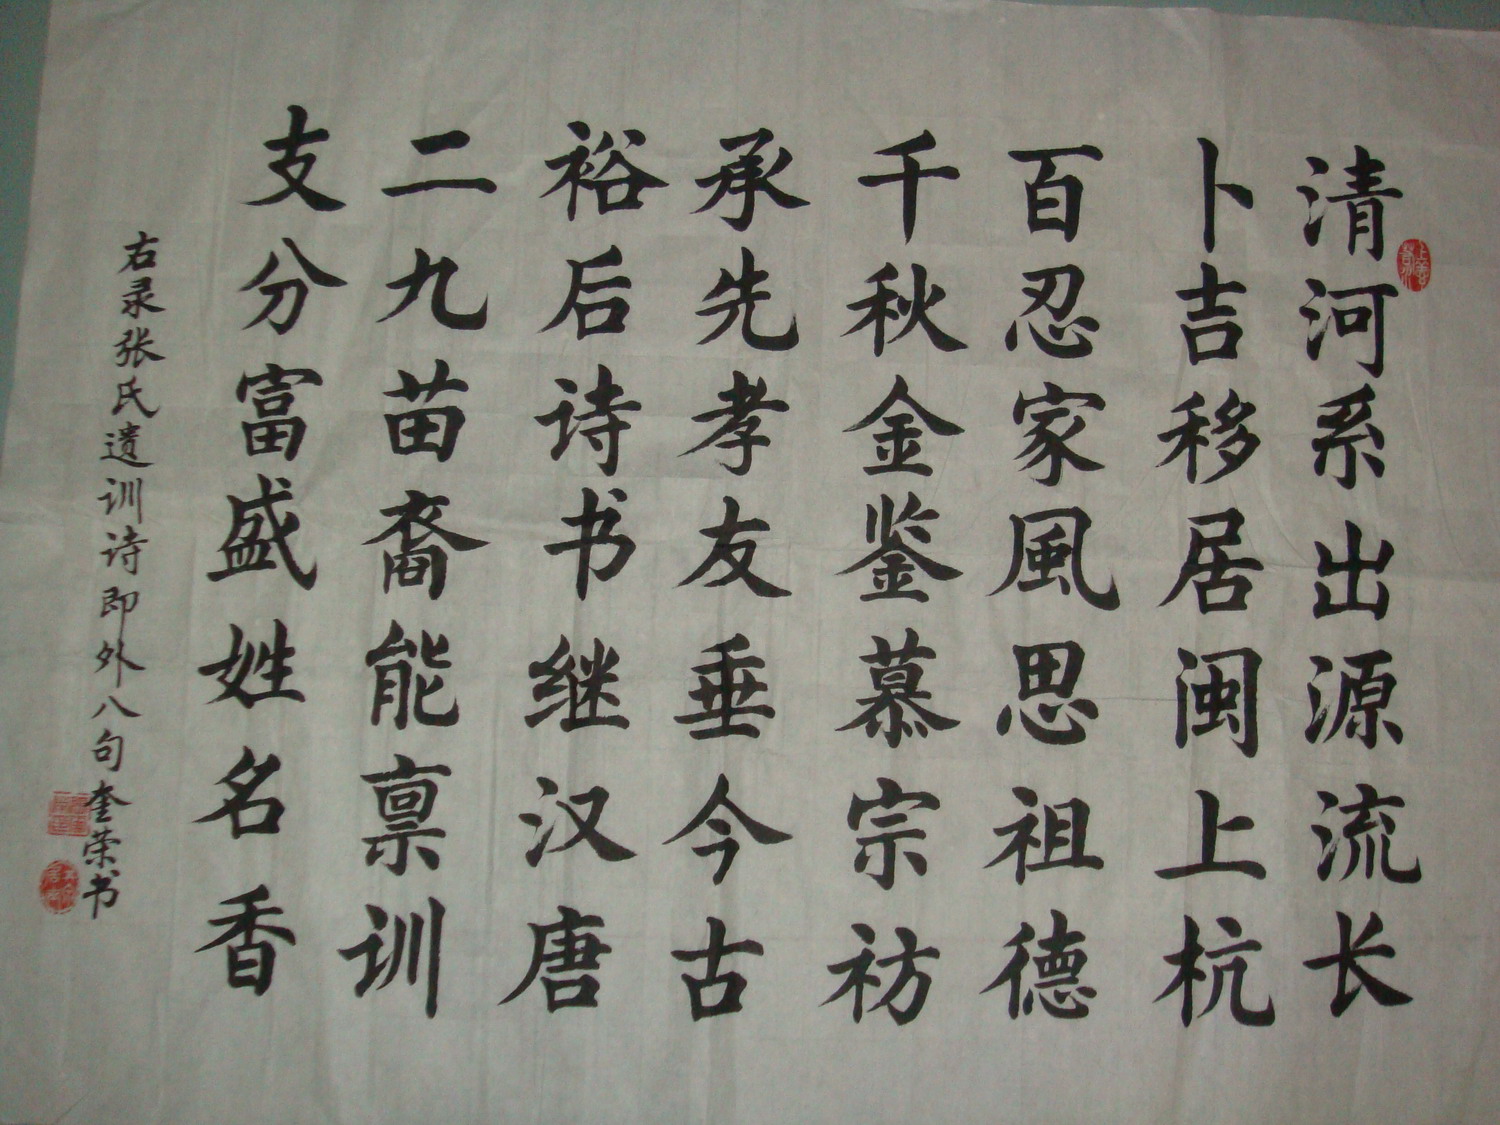 清河系出源流长
卜吉移居闽上杭
百忍家風思祖德
千秋金鉴慕宗祊
承先孝友垂今古
裕后诗书继汉唐
二九苗裔能禀训
支分富盛姓名香
右录张氏遗训诗即外八句奎荣书